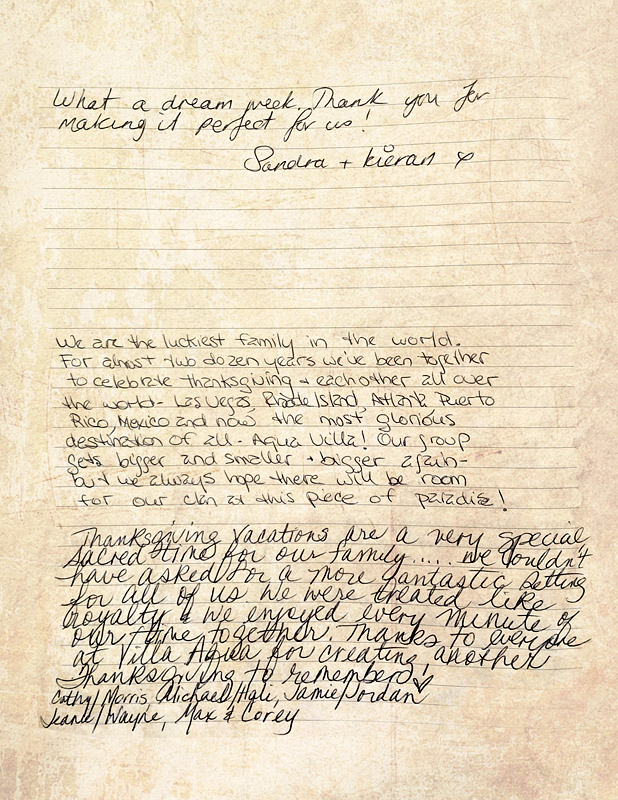 What a dream week. Thank you for
making it perfect for us!
Sandra + Kieran
We are the luckiest family in the world.
For almost two dozen years we've been together
to celebrate thanksgiving + each other all over
the world - Las Vegas, Rhode Island, Atlanta, Puerto
Rico, Mexico and now the most glorious
destination of all - Aqua Villa! Our group
gets bigger and smaller + bigger again -
but we always hope there will be room
for our clan at this piece of paradise!
Thanksgiving Vacations are a very special
sacred time for our family..... we couldn't
have asked for a more fantastic setting
for all of us we were treated like
royalty & we enjoyed every minute of
our time together. Thanks to everyone
at Villa Aqua for creating another
Thanksgiving to remember!
Cathy/Morris, Michael/Hali, Jamie/Jordan
Jeane/Wayne, Max & Corey